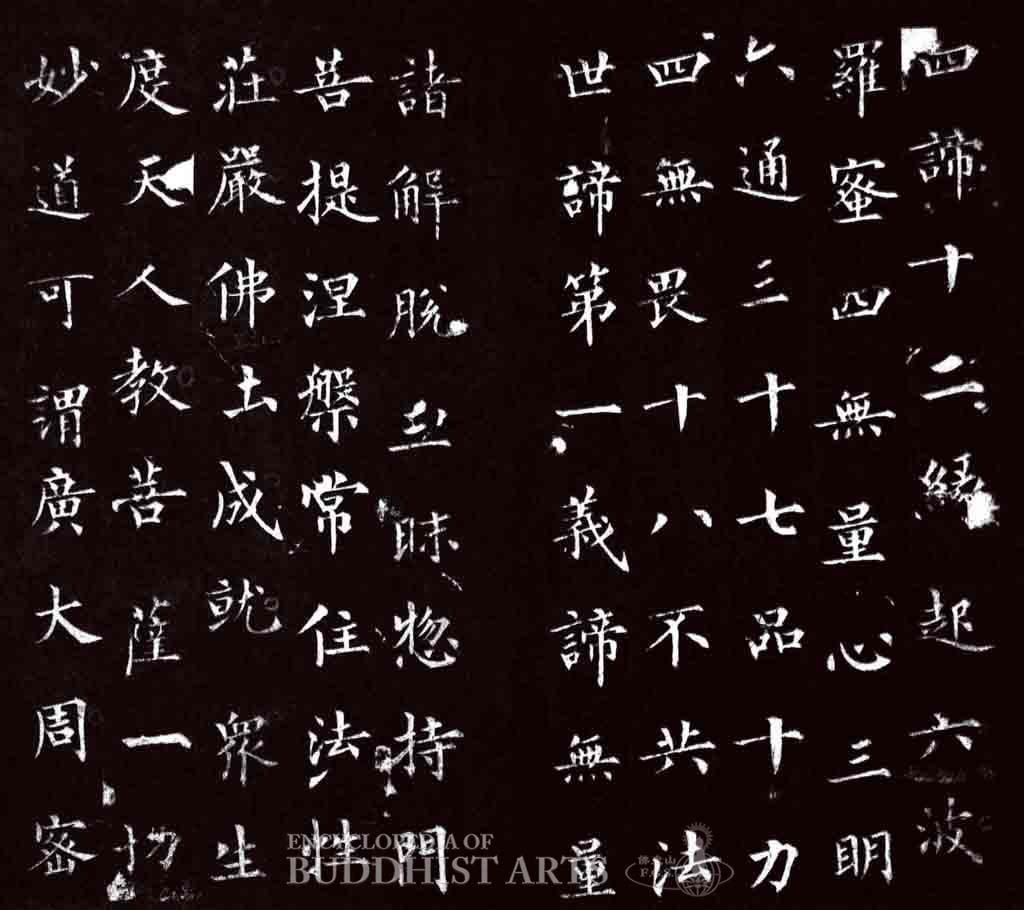 四諦十二緣起六波
羅蜜四無量心三明
六通三十七品十力
四無畏十八不共法
世諦第一義諦無量
諸解脫三昧惣持門
菩提涅槃常住法性
莊嚴佛土成就衆生
度天人教菩薩一切
妙道可謂廣大周密
ENCYCLOPEDIA OF
BUDDHIST ARTS